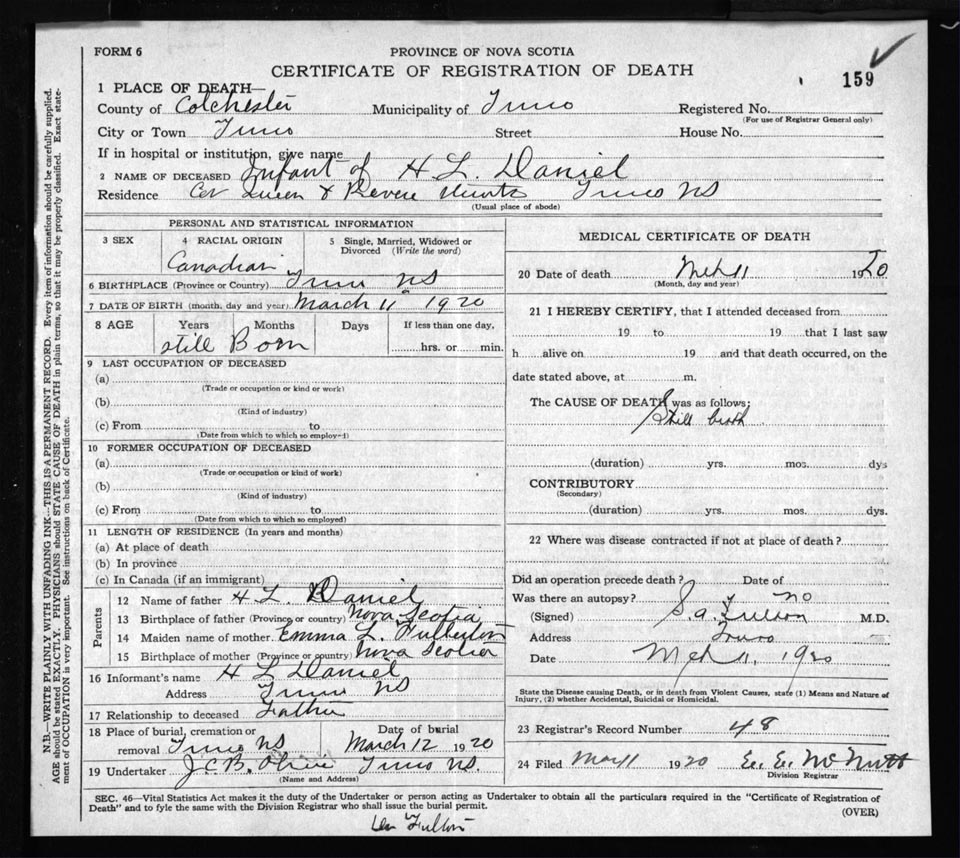 FORM 6
PROVINCE OF NOVA SCOTIA
CERTIFICATE OF REGISTRATION OF DEATH
159
1 PLACE OF DEATH—
County of Colchester Municipality of Truro Registered No.
(For use of Registrar General only)
City or Town Truro Street House No.
If in hospital or institution, give name
2 NAME OF DECEASED Infant of H L. Daniel
Residence Cor Queen & Revere Truro NS
(Usual place of abode)
PERSONAL AND STATISTICAL INFORMATION
3 SEX 4 RACIAL ORIGIN 5 Single, Married, Widowed or Divorced (Write the word)
Canadian
6 BIRTHPLACE (Province or Country) Truro NS
7 DATE OF BIRTH (month, day and year) March 11 1920
8 AGE Years Months Days If less than one day,
still Born hrs. or min.
9 LAST OCCUPATION OF DECEASED
(a)
(Trade or occupation or kind or work)
(b)
(Kind of industry)
(c) From to
(Date from which to which so employed)
10 FORMER OCCUPATION OF DECEASED
(a)
(Trade or occupation or kind of work)
(b)
(Kind of industry)
(c) From to
(Date from which to which so employed)
11 LENGTH OF RESIDENCE (In years and months)
(a) At place of death
(b) In province
(c) In Canada (if an immigrant)
Parents
12 Name of father H L. Daniel
13 Birthplace of father (Province or country) Nova Scotia
14 Maiden name of mother Emma L. Fulberton
15 Birthplace of mother (Province or country) Nova Scotia
16 Informant's name H L Daniel
Address Truro NS
17 Relationship to deceased Father
18 Place of burial, cremation or Date of burial
removal Truro NS March 12 1920
19 Undertaker J.C.B. Olive Truro NS.
(Name and Address)
MEDICAL CERTIFICATE OF DEATH
20 Date of death Mch 11 1920
(Month, day and year)
21 I HEREBY CERTIFY, that I attended deceased from
19 to 19 that I last saw
h alive on 19 and that death occurred, on the
date stated above, at m.
The CAUSE OF DEATH was as follows:
Still birth
(duration) yrs. mos. dys
CONTRIBUTORY
(Secondary)
(duration) yrs. mos. dys.
22 Where was disease contracted if not at place of death?
Did an operation precede death? Date of
Was there an autopsy? no
(Signed) S. A. Fulton M.D.
Address Truro
Date Mch 11, 1920
State the Disease causing Death, or in death from Violent Causes, state (1) Means and Nature of
Injury, (2) whether Accidental, Suicidal or Homicidal.
23 Registrar's Record Number 48
24 Filed Mar 11 1920 E. E. McNutt
Division Registrar
SEC. 46—Vital Statistics Act makes it the duty of the Undertaker or person acting as Undertaker to obtain all the particulars required in the "Certificate of Registration of
Death" and to fyle the same with the Division Registrar who shall issue the burial permit.
(OVER)
Fulton
N.B.—WRITE PLAINLY WITH UNFADING INK—THIS IS A PERMANENT RECORD. Every item of information should be carefully supplied.
AGE should be stated EXACTLY. PHYSICIANS should STATE CAUSE OF DEATH in plain terms, so that it may be properly classified. Exact state-
ment of OCCUPATION is very important. See instructions on back of Certificate.